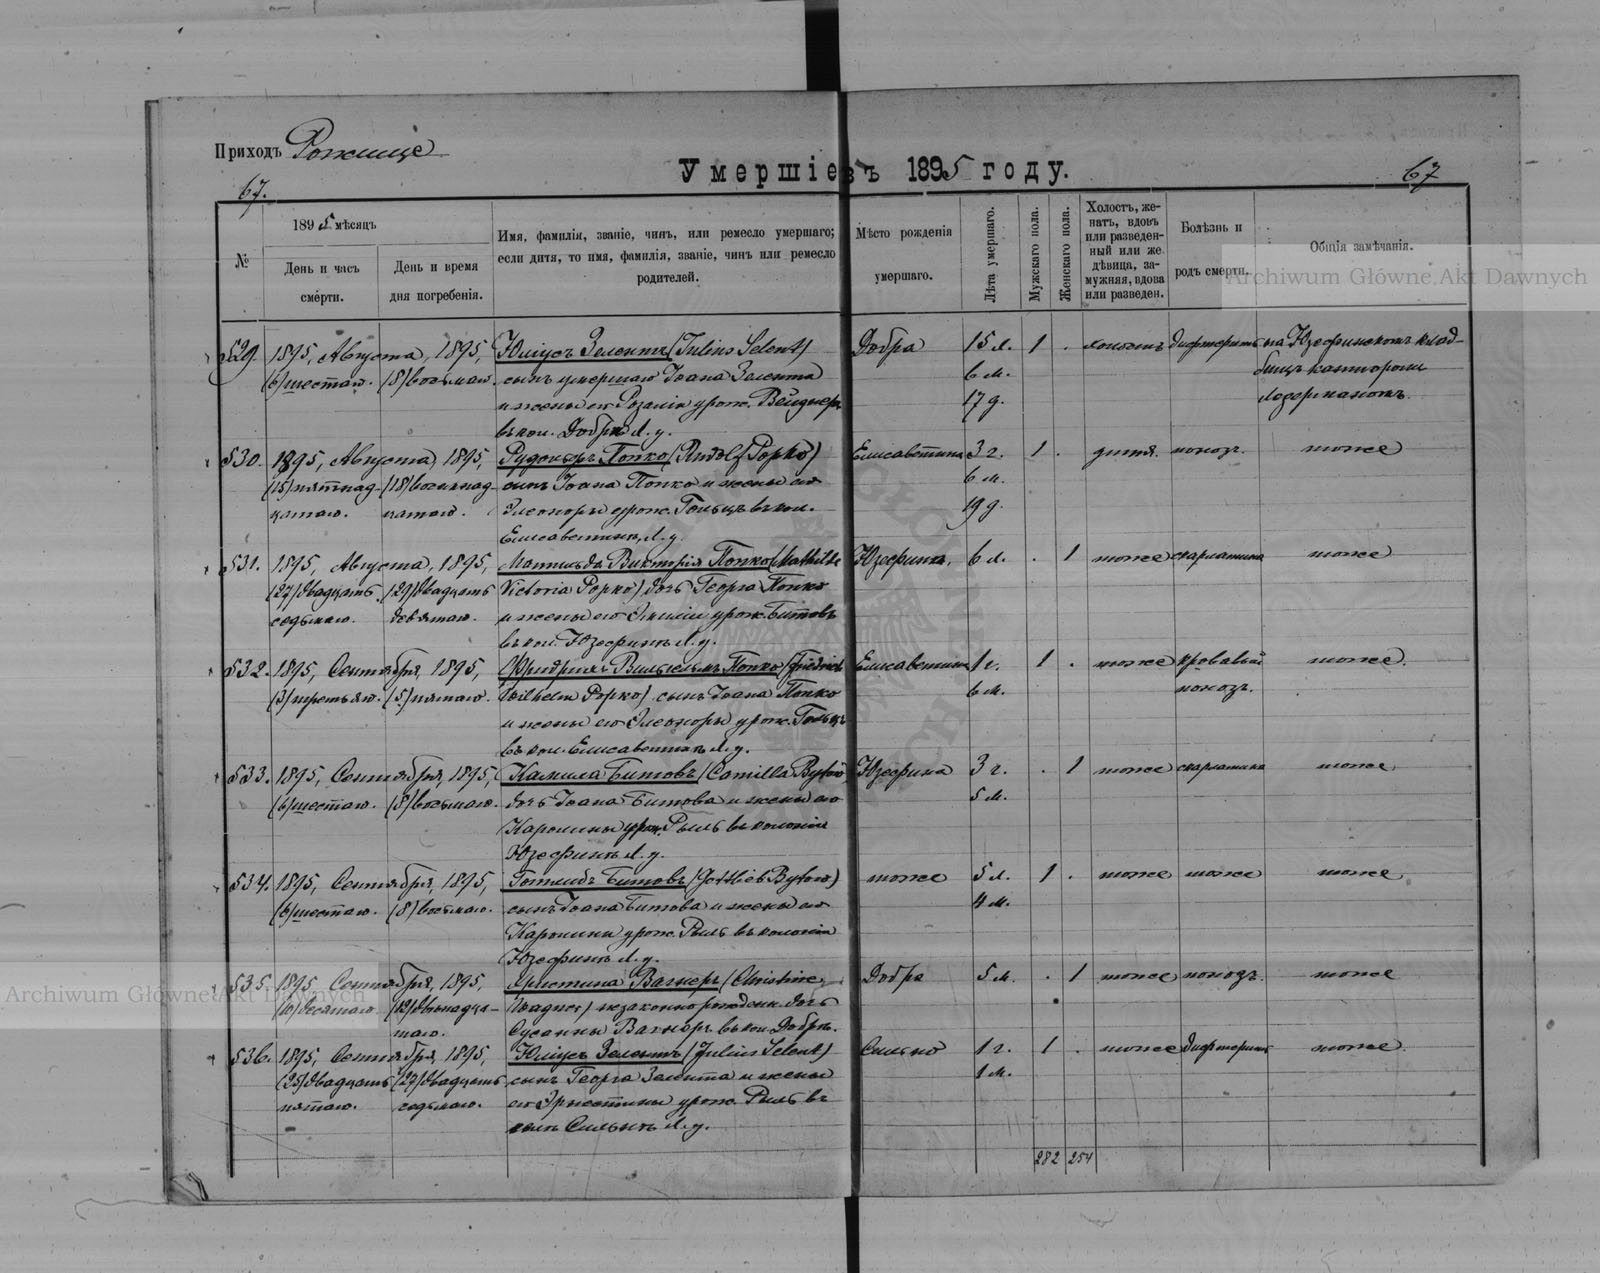 Приходъ Рожище
Умершіе въ 1895 году.
67.
67
№
1895 мѣсяцъ
День и часъ смерти.
День и время дня погребенія.
Имя, фамилія, званіе, чинъ, или ремесло умершаго;
если дитя, то имя, фамилія, званіе, чинъ или ремесло
родителей.
Мѣсто рожденія
умершаго.
Лѣта умершаго.
Мужскаго пола.
Женскаго пола.
Холостъ, же-
натъ, вдовъ
или разведен-
ный или же
дѣвица, за-
мужняя, вдова
или разведен.
Болѣзнь и
родъ смерти.
Общія замѣчанія.
Archiwum Główne Akt Dawnych
529. 1895, Августа, 1895, Юліусъ Зелентъ (Julius Selent) Добра 15 л. 1 . холостъ дифтеритъ на Юзефинскомъ клад-
(6) шестаго. (8) восьмаго. сынъ умершаго Іоана Зелента 6 м. бищѣ канторомъ
и жены его Розаліи урож. Вейднеръ 17 д.
въ кол. Добрѣ Л. у.
530. 1895, Августа, 1895, Рудольфъ Попко (Rudolf Popko) Елисаветинъ 3 г. 1 . дитя. поносъ. тоже
(15) пятнад- (18) восемнад- сынъ Іоана Попко и жены его 6 м.
цатаго. цатаго. Элеоноры урож. Гольцъ въ кол. 19 д.
Елисаветинѣ, Л. у.
531. 1895, Августа, 1895, Матильда Викторія Попко (Mathilde Юзефина, 6 л. . 1 тоже скарлатина тоже
(27) двадцать (29) двадцать Victoria Popko) дочь Георга Попко
седьмаго. девятаго. и жены его Эмиліи урож. Битовъ
въ кол. Юзефинѣ Л. у.
532. 1895, Сентября, 1895, Фридрихъ Вильгельмъ Попко (Friedrich Елисаветинъ 1 г. 1 . тоже кровавый тоже.
(3) третьяго. (5) пятаго. Wilhelm Popko) сынъ Іоана Попко 6 м. поносъ.
и жены его Элеоноры урож. Гольцъ
въ кол. Елисаветинѣ Л. у.
533. 1895, Сентября, 1895, Камилла Битовъ (Camilla Bytow) Юзефина 3 г. . 1 тоже скарлатина тоже
(6) шестаго. (8) восьмаго. дочь Іоана Битова и жены его 5 м.
Каролины урож. Рыль въ колоніи
Юзефинѣ Л. у.
534. 1895, Сентября, 1895, Готлибъ Битовъ (Gottlieb Bytow) тоже 5 л. 1 . тоже тоже тоже
(6) шестаго. (8) восьмаго. сынъ Іоана Битова и жены его 4 м.
Каролины урож. Рыль въ колоніи
Юзефинѣ Л. у.
535 1895 Сентября, 1895, Христина Вагнеръ (Christine Добра 5 м. . 1 тоже поносъ. тоже
(10) десятаго. (12) двѣнадца- Wagner) незаконно рожденн. дочь
таго. Сусанны Вагнеръ въ кол. Добрѣ.
Archiwum Główne Akt Dawnych
536. 1895, Сентября, 1895, Юліусъ Зелентъ (Julius Selent) Сильно 1 г. 1 . тоже дифтеритъ тоже
(25) двадцать (27) двадцать сынъ Георга Зелента и жены 1 м.
пятаго. седьмаго. его Эрнестины урож. Рыль въ
кол. Сильнѣ Л. у.
282 254